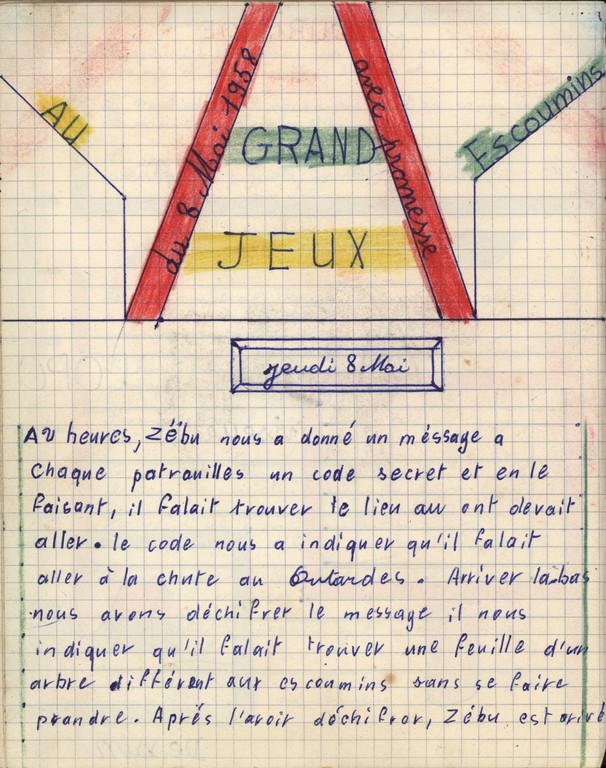 Au
du 8 Mai 1958
avec promesse
Escoumins
GRAND
JEUX
jeudi 8 Mai
Au heures, Zébu nous a donné un méssage a
chaque patrouilles un code secret et en le
faisant, il falait trouver le lieu au ont devait
aller. le code nous a indiquer qu'il falait
aller à la chute au Outardes. Arriver la-bas
nous avons déchifrer le message il nous
indiquer qu'il falait trouver une feuille d'un
arbre différent aux escoumins sans se faire
prandre. Aprés l'avoir déchifror, Zébu est arivé